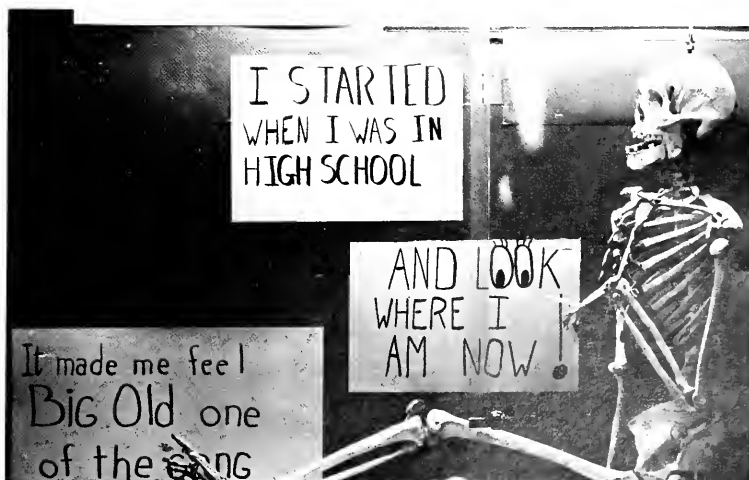 I STARTED
WHEN I WAS IN
HIGH SCHOOL
AND LOOK
WHERE I
AM NOW!
It made me feel
BiG Old one
of the GANG